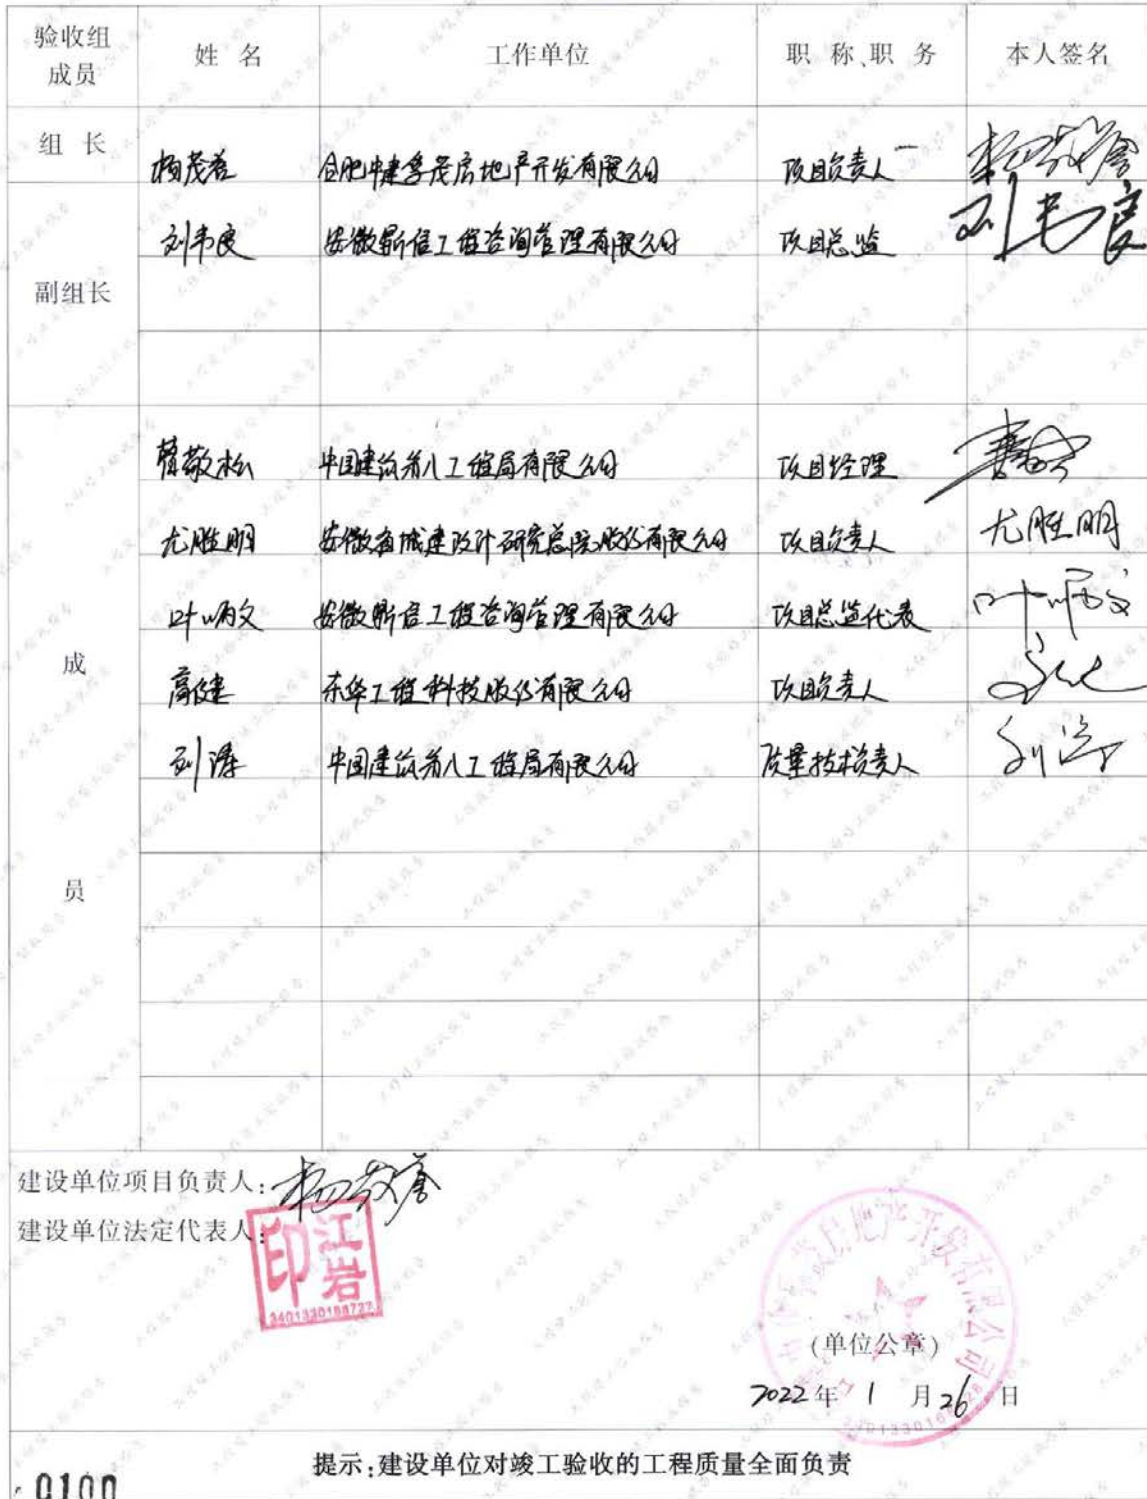 验收组
成员 姓 名 工作单位 职 称、职 务 本人签名
组 长 杨茂 合肥中建孚茂房地产开发有限公司 项目负责人
副组长 刘韦良 安徽鼎信工程咨询管理有限公司 项目总监 刘韦良
成 员
敬松 中国建筑第八工程局有限公司 项目经理
尤胜明 安徽省城建设计研究总院股份有限公司 项目负责人 尤胜明
叶炳文 安徽鼎信工程咨询管理有限公司 项目总监代表 叶炳文
高健 东华工程科技股份有限公司 项目负责人
刘涛 中国建筑第八工程局有限公司 质量技术负责人 刘涛
建设单位项目负责人:
建设单位法定代表人:
江岩印
(单位公章)
2022年 1 月 26 日
提示:建设单位对竣工验收的工程质量全面负责
0100